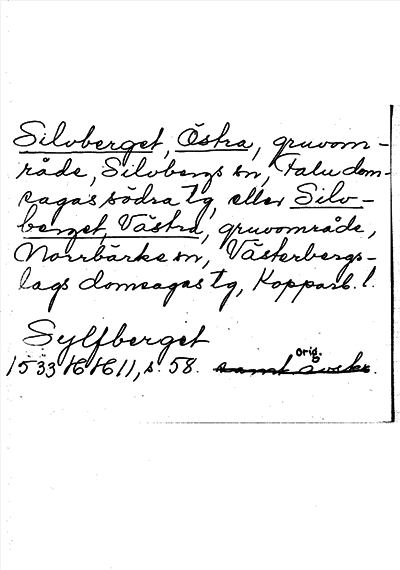 Silvberget, Östra, gruvom-
råde, Silvbergs sn, Falu dom-
sagas södra tg, eller Silv-
berget, Västra, gruvområde,
Norrbärke sn, Västerbergs-
lags domsagas tg, Kopparb. l.
Sylfberget
1533 16 16 11, s. 58. samt avskr.
orig.